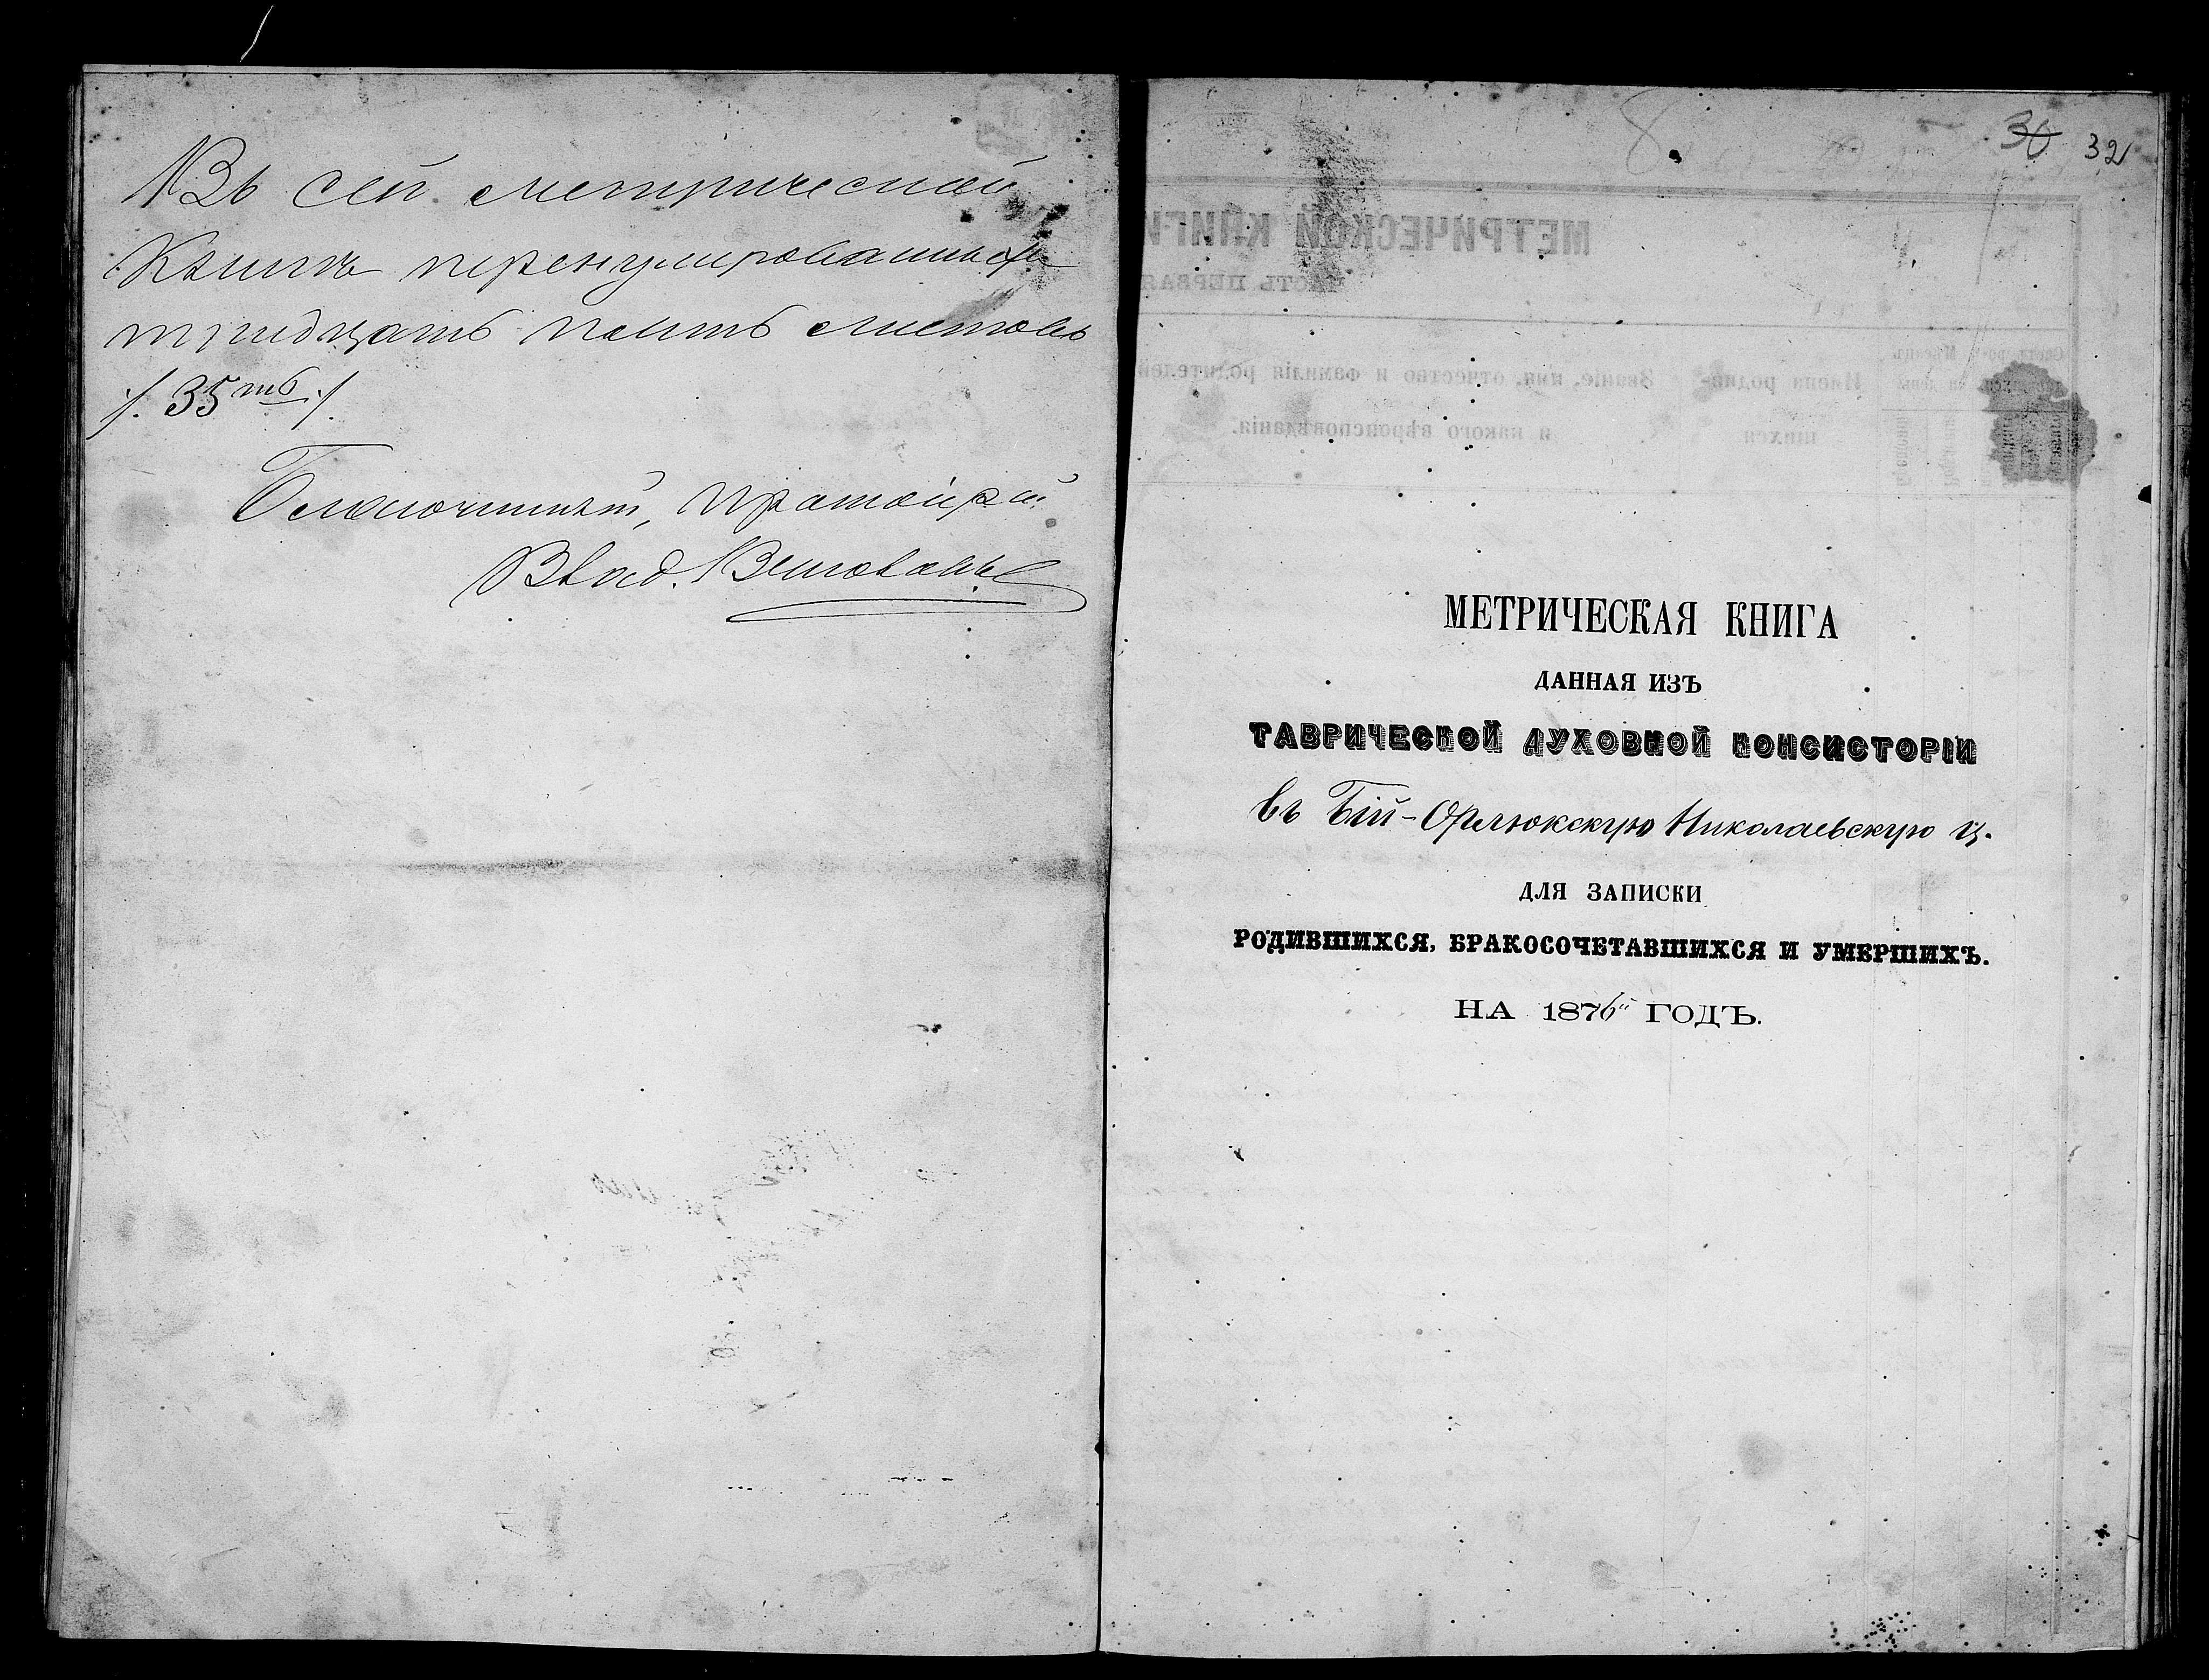 Въ сей метрической
книгѣ перенумерованныхъ
тридцать пять листовъ
/. 35ть ./
Благочинный, протоіерей
Влад.
30 32
8
МЕТРИЧЕСКАЯ КНИГА
ДАННАЯ ИЗЪ
ТАВРИЧЕСКОЙ ДУХОВНОЙ КОНСИСТОРІИ
въ Бій-Орлюкскую Николаевскую ц.
ДЛЯ ЗАПИСКИ
РОДИВШИХСЯ, БРАКОСОЧЕТАВШИХСЯ И УМЕРШИХЪ.
НА 1876й ГОДЪ.